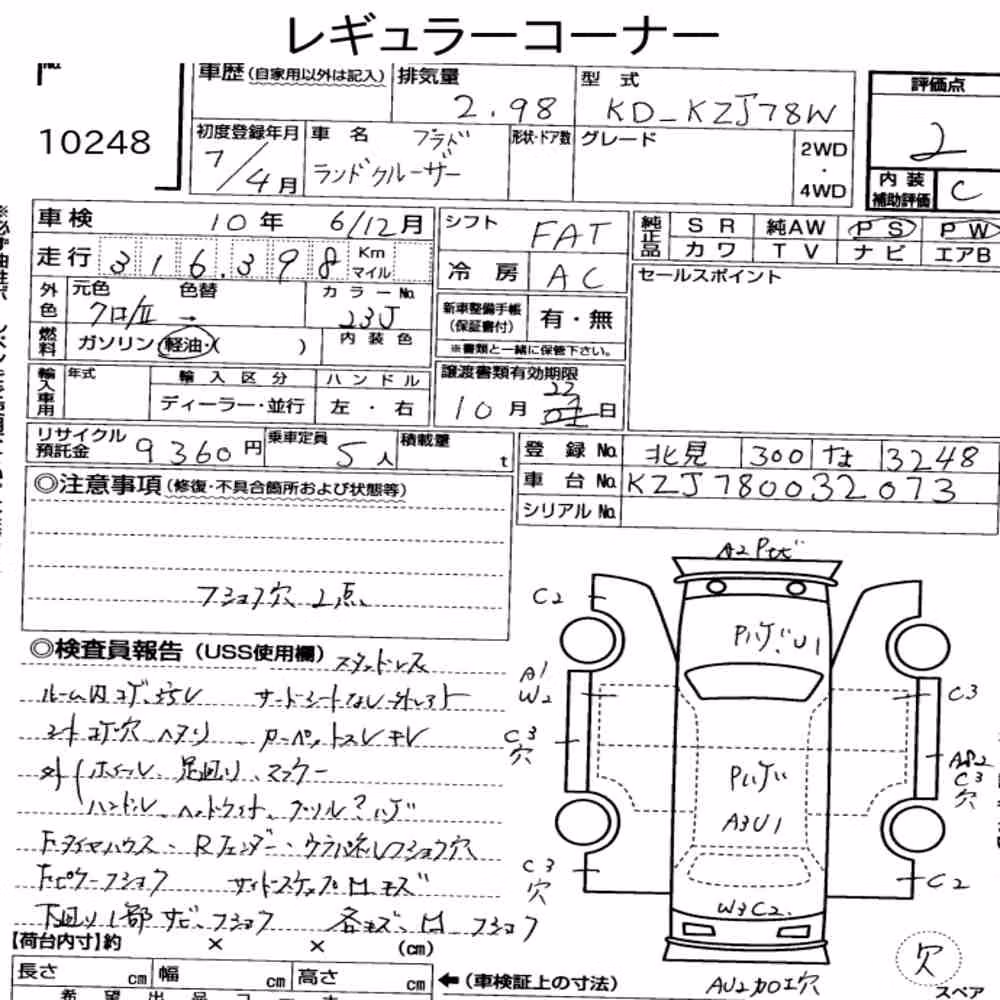 レギュラーコーナー
10248
車歴 (自家用以外は記入) 排気量 2.98 型式 KD-KZJ78W
評価点 2
初度登録年月 7/4月 車名 プラド ランドクルーザー 形状・ドア数 グレード 2WD・4WD
内装補助評価 C
車検 10年 6/12月 シフト FAT 純正品 SR 純AW PS PW
カワ TV ナビ エアB
走行 316,398 Km マイル 冷房 AC セールスポイント
外色 元色 クロ/II → 色替 カラーNo. 23J
新車整備手帳 (保証書付) 有・無
※書類と一緒に保管下さい。
燃料 ガソリン・軽油・( ) 内装色
輸入車用 年式 輸入区分 ハンドル
ディーラー・並行 左・右
譲渡書類有効期限 10月 22日
リサイクル預託金 9360円 乗車定員 5人 積載量 t
登録No. 北見 300 な 3248
車台No. KZJ780032073
シリアルNo.
◎注意事項 (修復・不具合箇所および状態等)
フショク穴 2点
◎検査員報告 (USS使用欄) スタッドレス
ルーム内コゲ、汚レ サードシートなし
シート コゲ穴 ヘタリ カーペットスレ キレ
外(ホイール、足廻り、マフラー
ハンドル、ヘッドライナ、グリル?ハゲ
Fタイヤハウス、Rフェンダー、ウラ
サイドステップ凹キズ
下廻り1部サビ、フショク 各キズ、凹 フショク
【荷台内寸】約 × × (cm)
長さ cm 幅 cm 高さ cm ←(車検証上の寸法)
希望出品コーナー
C2
Pハゲ、U1
A1
W2
C3
C3
穴
Pハゲ
A3U1
C3
穴
C3
穴
C2
W3C2
AU2加工穴
穴
スペア